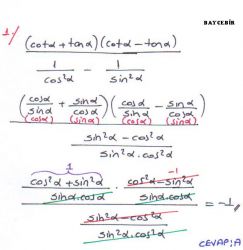 BAYCEBİR
1/ (cotα + tanα)(cotα − tanα)
1/cos²α − 1/sin²α
(cosα/sinα + sinα/cosα)(cosα/sinα − sinα/cosα)
(cosα) (sinα) (cosα) (sinα)
sin²α − cos²α
sin²α . cos²α
1 −1
cos²α + sin²α/sinα.cosα . cos²α − sin²α/sinα.cosα = −1
sin²α − cos²α
sin²α . cos²α
CEVAP: A